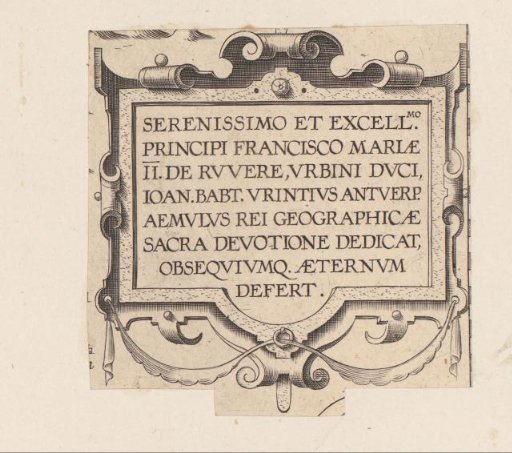 SERENISSIMO ET EXCELL.MO
PRINCIPI FRANCISCO MARIÆ
II. DE RVVERE, VRBINI DVCI,
IOAN. BABT. VRINTIVS ANTVERP.
AEMVLVS REI GEOGRAPHICÆ
SACRA DEVOTIONE DEDICAT,
OBSEQVIVMQ. ÆTERNVM
DEFERT.